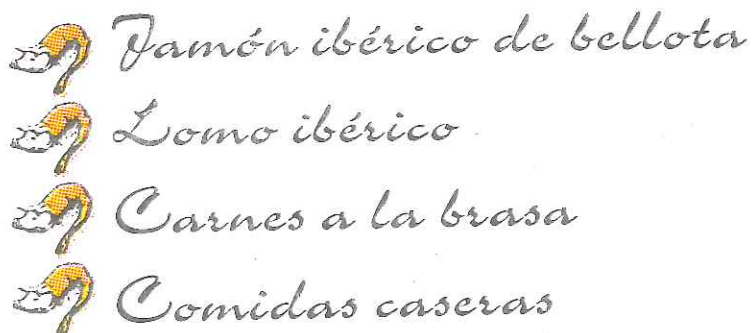 Jamón ibérico de bellota
Lomo ibérico
Carnes a la brasa
Comidas caseras